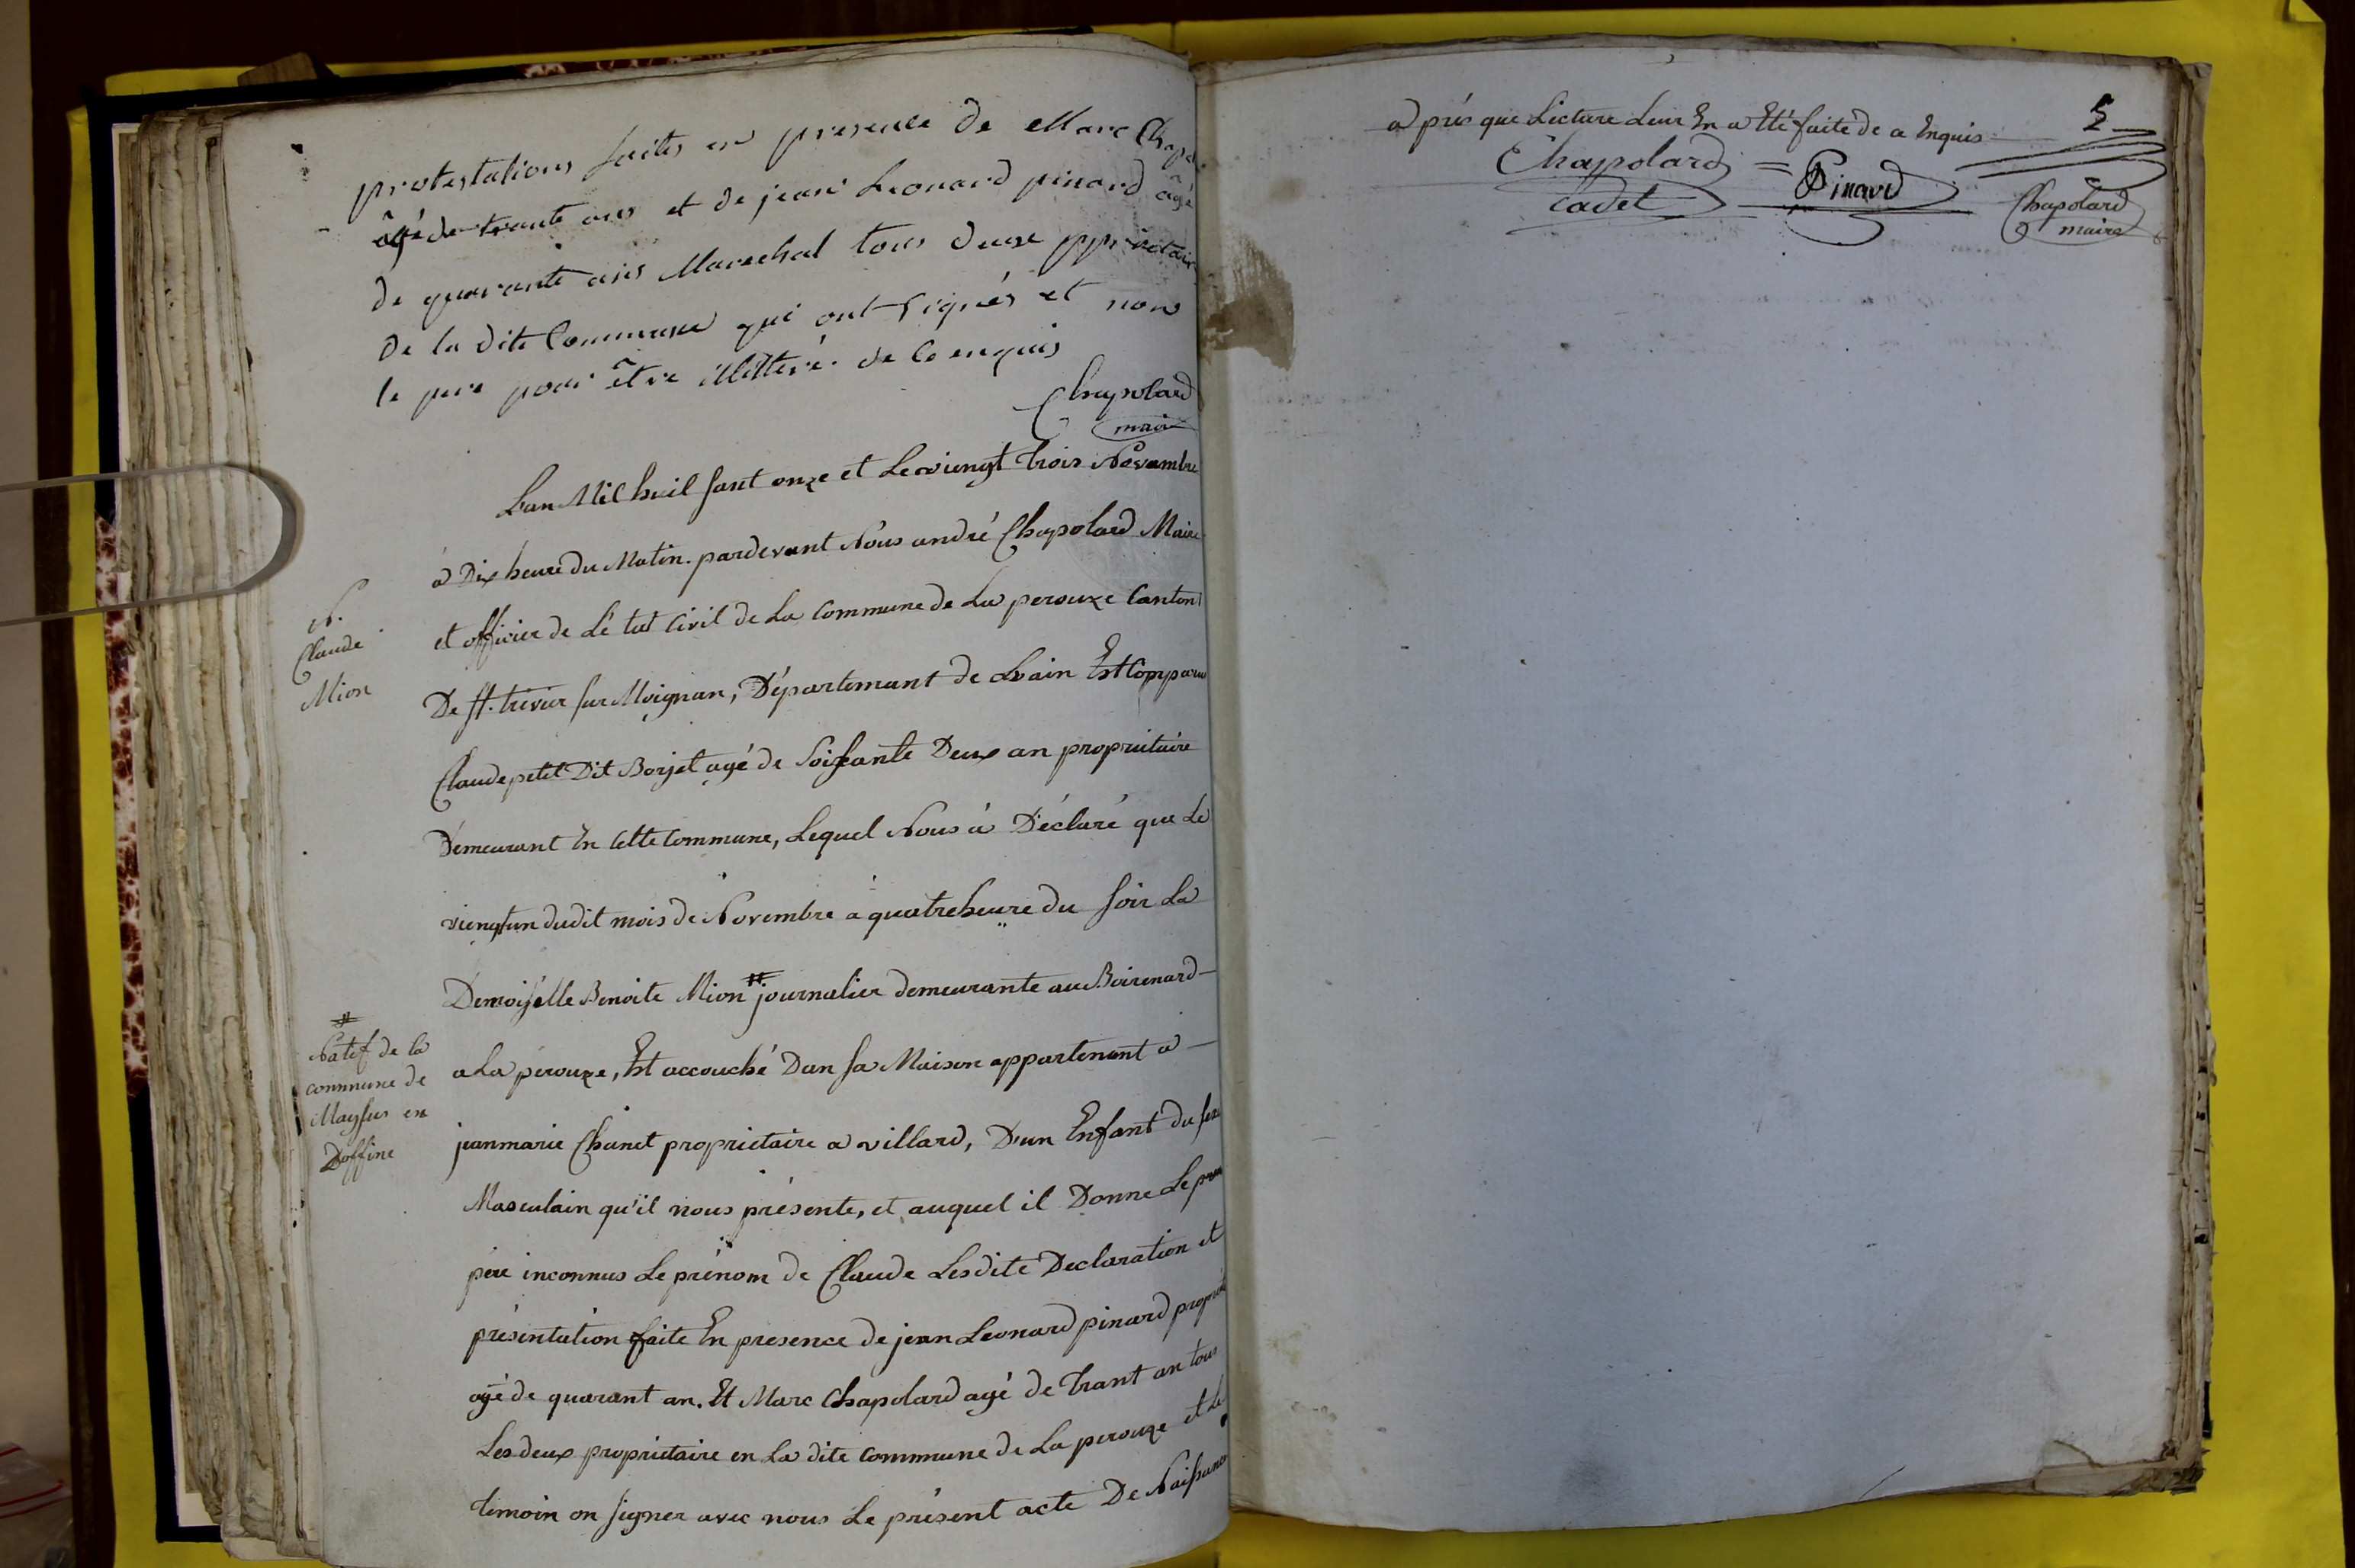 protestations faites en presence de Marc Chapol
âgé de trante ans et de jean Leonard pinard âgé
de quarante ans Marechal tous deux pprietair
de la dite Commune qui ont signés et non
le pere pour être illitteré de ce enquis
Chapolard
maire
Lan Mil huil sant onze et Le viengt trois Novambre
à Dix heure du Matin. pardevant Nous andré Chapolard Maire
et officier de L'é tat Civil de La Commune de La perouze Canton
De st. trivier sur Moignan, Département de Lain Est Comparu
Claude petit Dit Borjet agé de Soissante Deux an propriétaire
Démeurant En Cette Commune, Lequel Nous à Déclaré que Le
viengtun dudit mois de Novembre a quatre heure du soir La
Demoiselle Benoite Mion # journalier demeurante au Boirenard
a La pérouze, Est accouché Dan sa Maison appartenant a
jeanmarie Chanet proprietaire a villard, D'un Enfant du sex
Masculain qu'il nous présente, et auquel il Donne Le pren
père inconnus Le prénom de Claude Lesdite Declaration et
présentation faite En presence de jean Leonard pinard proprié
agé de quarant an. Et Marc Chapolard agé de trant an tous
Les deux proprietaire en La dite Commune de La perouze et Le
temoin on signer avec nous Le présent acte De Naissance
N.
Claude
Mion
#
Natif de la
commune de
Maysus en
Doffine
5
a prés que Lecture Leur En a Eté faite de a Enquis
Chapolard
Cadet
Pinard
Chapolard
maire